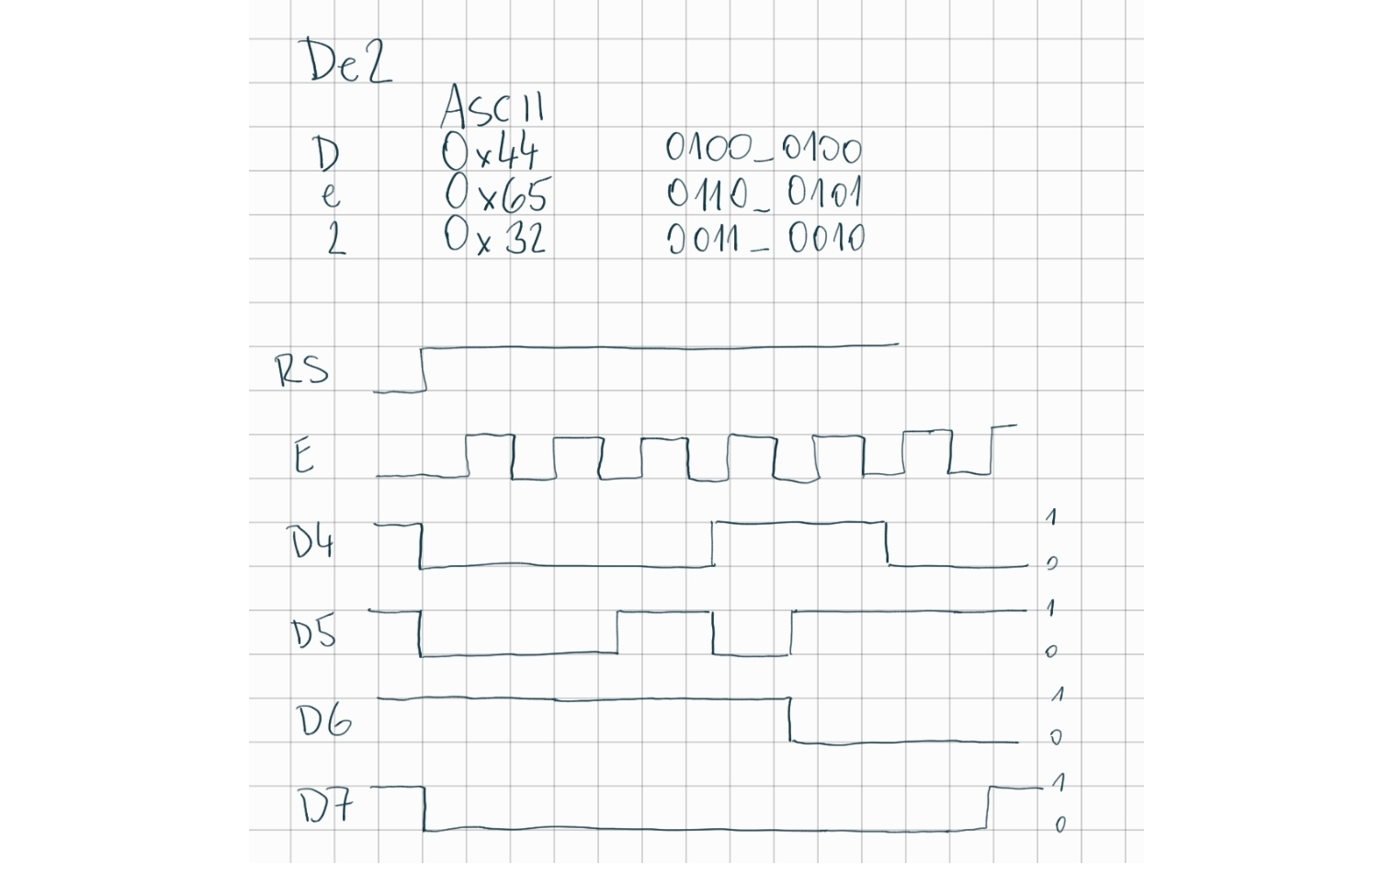 De2
ASCII
D 0x44 0100_0100
e 0x65 0110_0101
2 0x32 0011_0010
RS
E
D4 1
0
D5 1
0
D6 1
0
D7 1
0